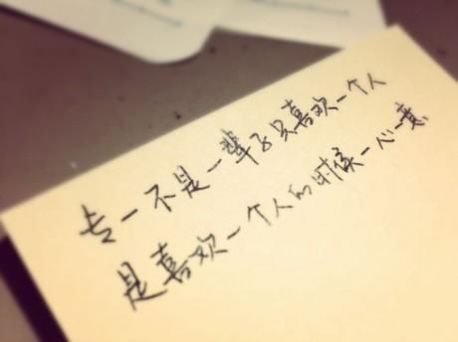 专一不是一辈子只喜欢一个人
是喜欢一个人的时候一心一意